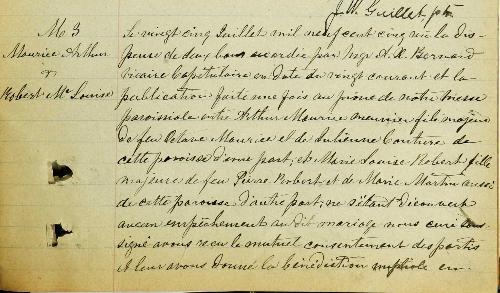 J. W. Guillet ptre
M 3
Maurice Arthur
&
Robert Me Louise
Le vingt cinq Juillet mil neuf cent cinq vu la dis-
pense de deux bans accordée par Mgr A. X. Bernard
Vicaire Capitulaire en date du vingt courant et la
publication faite une fois au prône de notre messe
paroissiale entre Arthur Maurice meunier fils majeur
de feu Octave Maurice et de Julienne Couture de
cette paroisse d'une part; et Marie Louise Robert fille
majeure de feu Pierre Robert et de Marie Martin aussi
de cette paroisse d'autre part; ne s'étant découvert
aucun empêchement au dit mariage nous curé sous-
signé avons reçu le mutuel consentement des parties
et leur avons donné la bénédiction nuptiale en